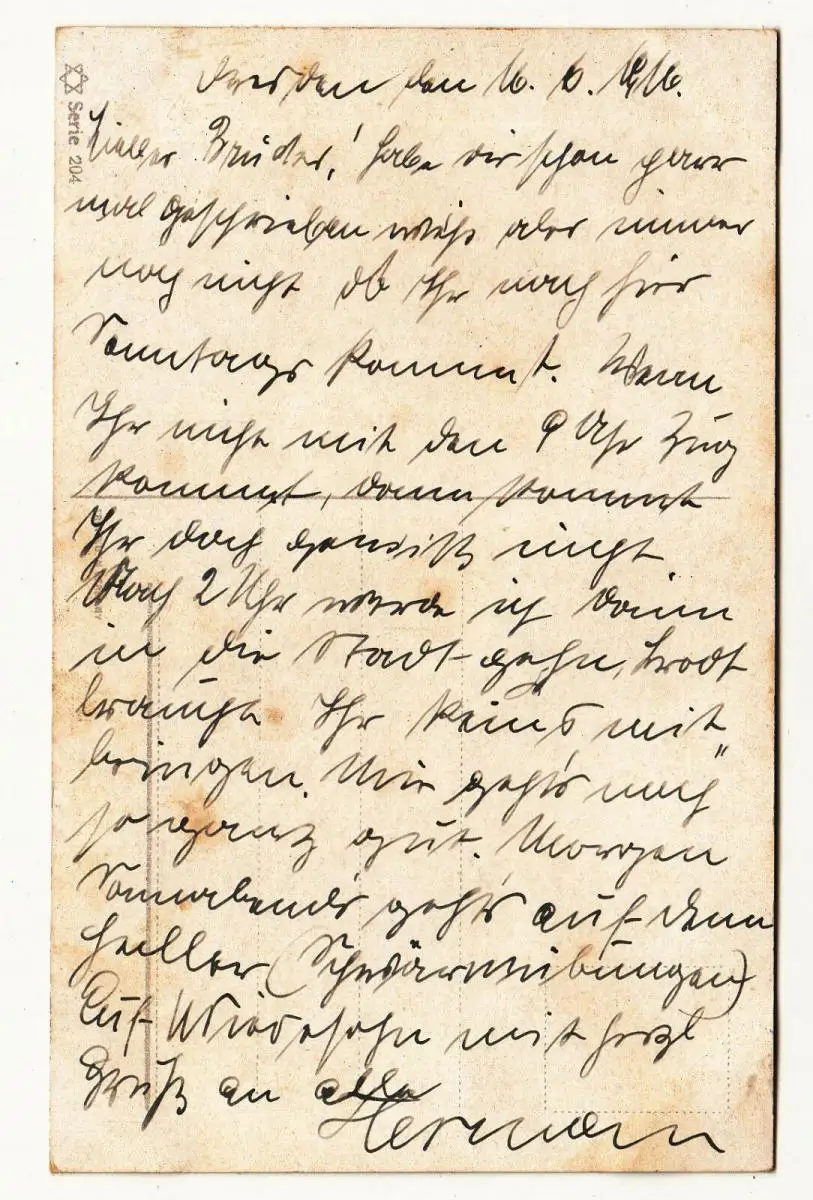 Serie 204
Dresden den 16. 6. 1916.
Lieber Bruder! Habe dir schon paar
mal geschrieben weiß aber immer
noch nicht ob Ihr nach hier
Sonntags kommt. Wenn
Ihr nicht mit den 9 Uhr Zug
kommt, dann kommt
Ihr doch gewiß nicht
Nach 2 Uhr werde ich dann
in die Stadt gehn, brodt
braucht Ihr keins mit
bringen. Mir geht's noch
so ganz gut. Morgen
Sonnabends geht's auf denn
Heller (Schwärmübungen)
Auf Wiedersehn mit herzl
Gruß an alle
Hermann